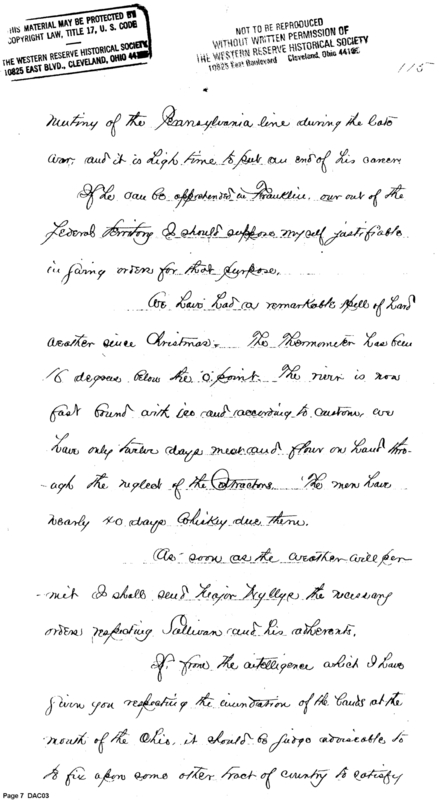 THIS MATERIAL MAY BE PROTECTED BY
COPYRIGHT LAW, TITLE 17, U. S. CODE
THE WESTERN RESERVE HISTORICAL SOCIETY
10825 EAST BLVD., CLEVELAND, OHIO 44106
NOT TO BE REPRODUCED
WITHOUT WRITTEN PERMISSION OF
THE WESTERN RESERVE HISTORICAL SOCIETY
10825 East Boulevard Cleveland, Ohio 44106
115
mutiny of the Pennsylvania line during the late
war, and it is high time to put an end of his career.
If he can be apprehended in Franklin, our out of the
federal territory I should suppose myself justifiable
in giving orders for that purpose.
We have had a remarkable spell of hard
weather since Christmas. The Thermometer has been
16 degrees below the 0 point. The river is now
fast bound with ice and according to custom, we
have only twelve days meat and flour on hand thro-
-ugh the neglect of the Contractors. The men have
nearly 40 days whiskey due them.
As soon as the weather will per-
-mit I shall send Major Wyllys the necessary
orders respecting Sullivan and his adherents.
If from the intelligence which I have
given you respecting the inundation of the lands at the
mouth of the Ohio, it should be judge adviseable to
to fix upon some other tract of country to satisfy
Page 7 DAC03